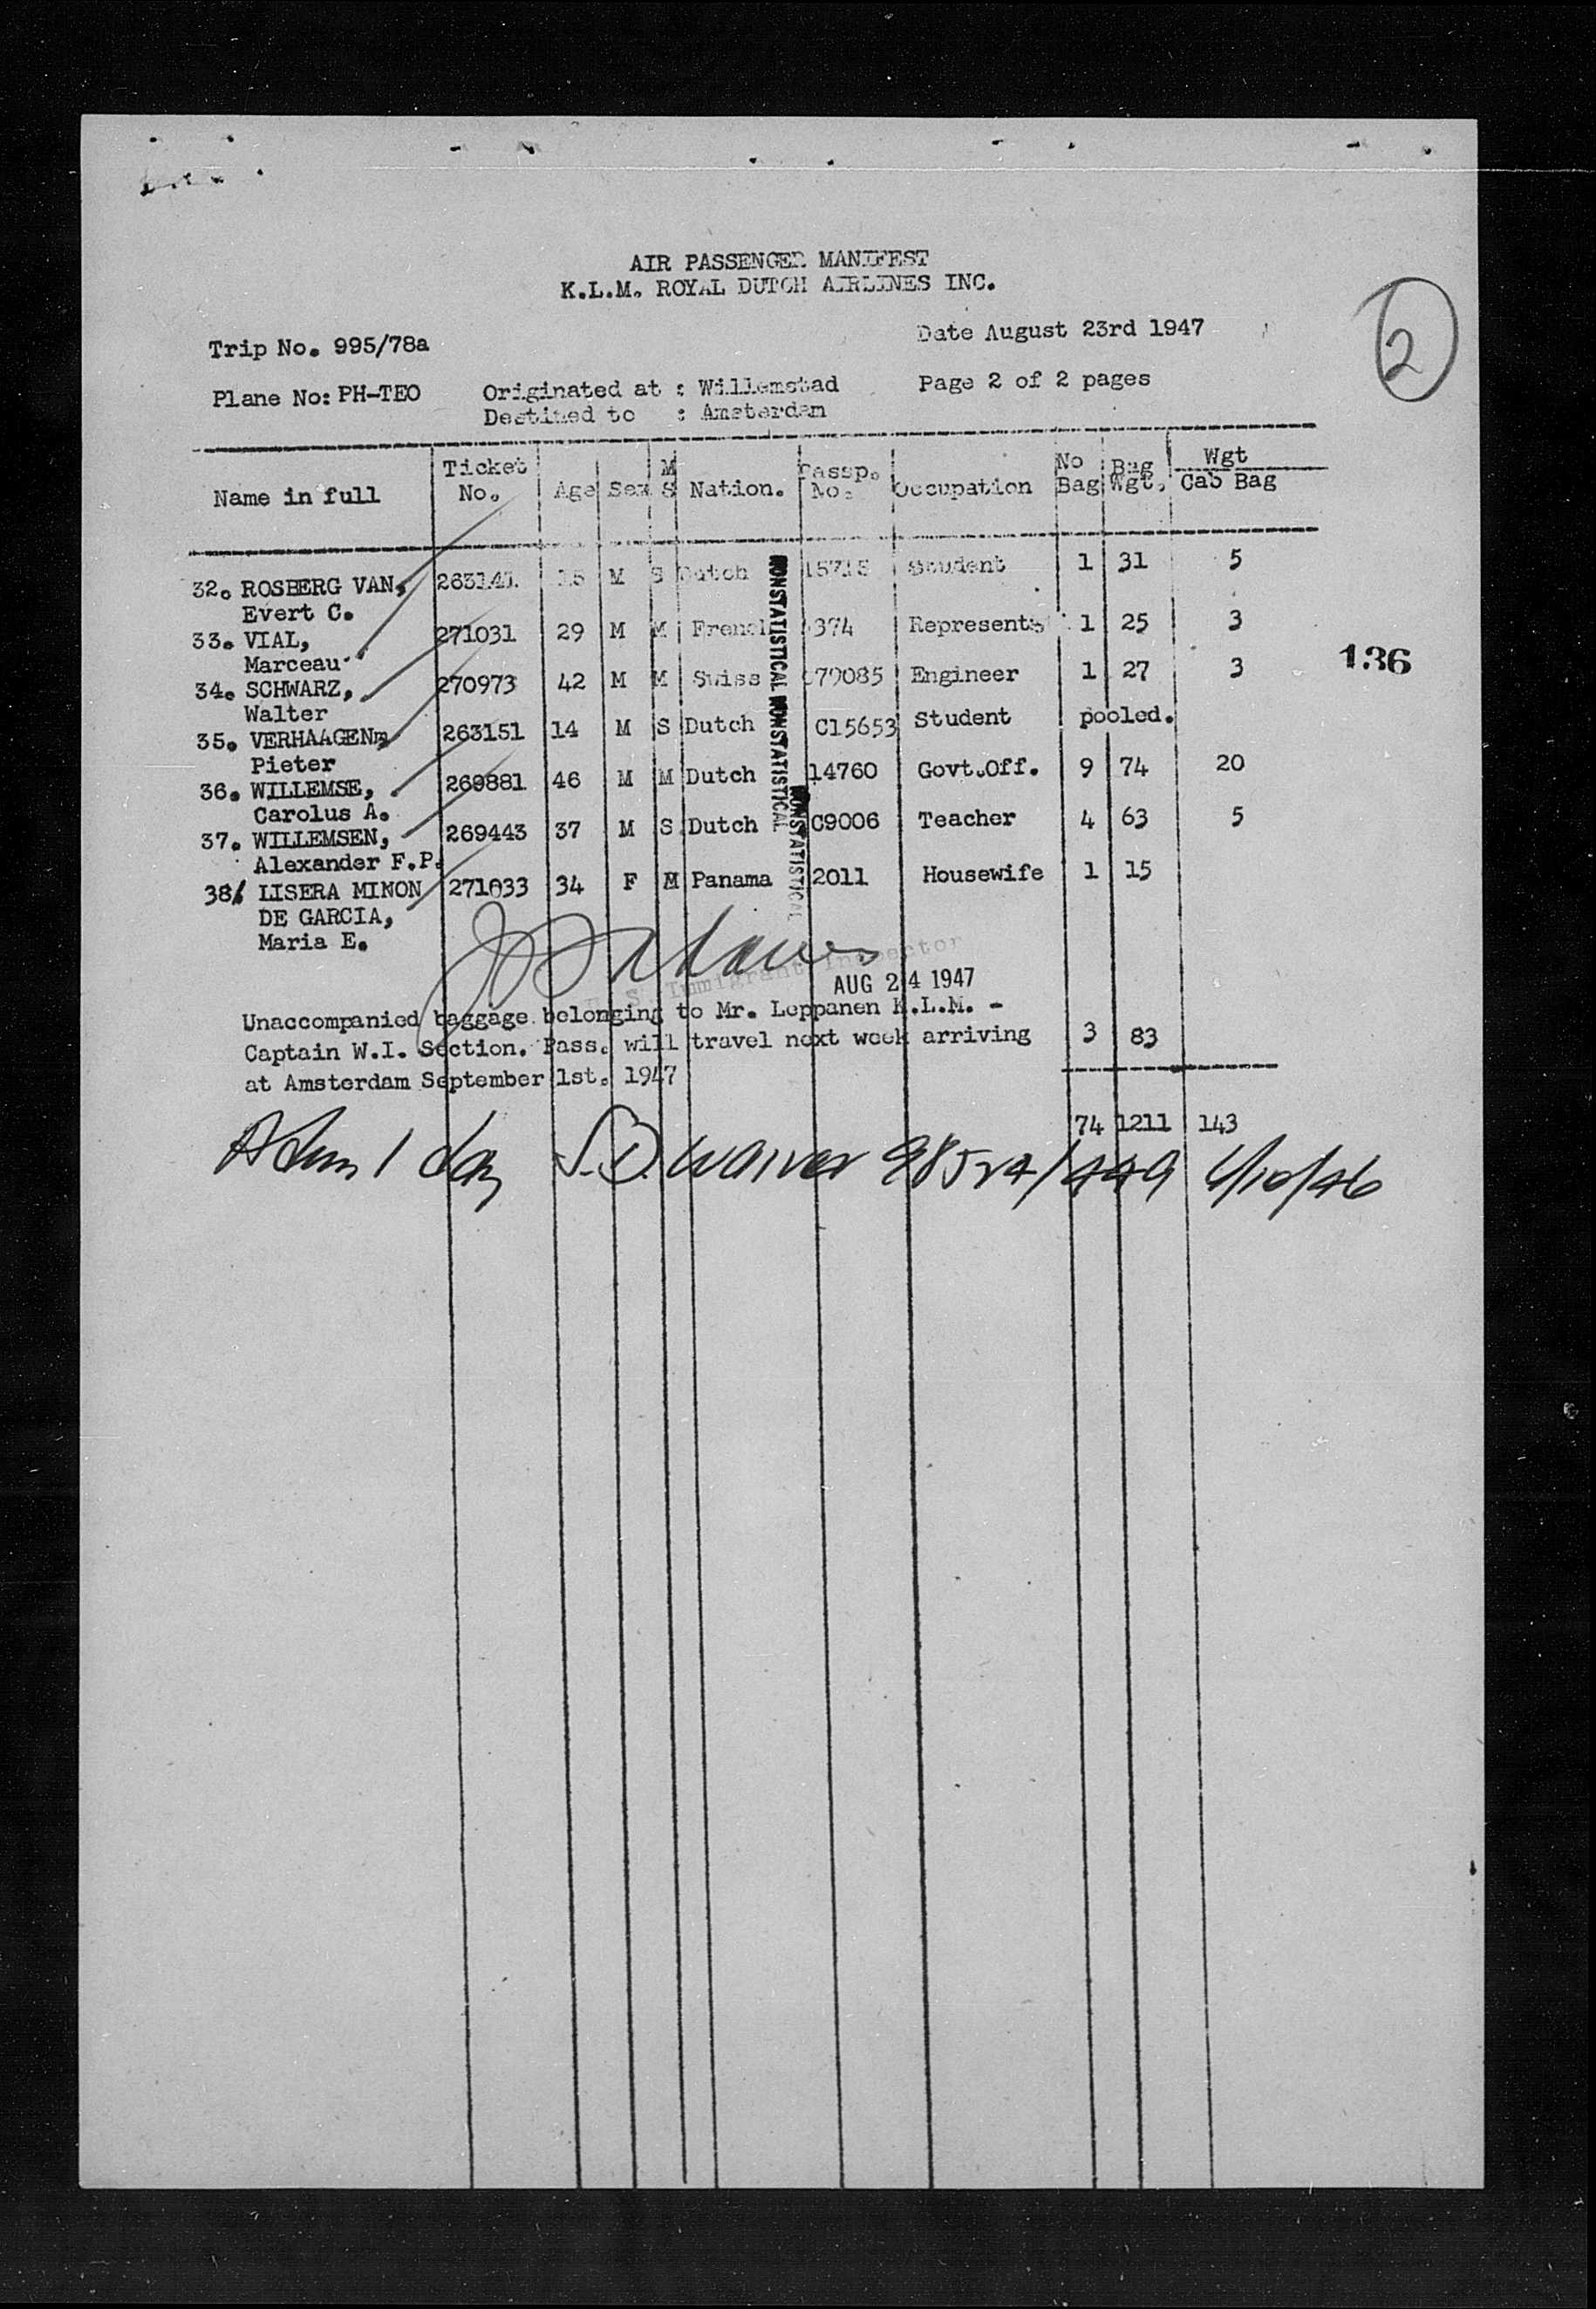 AIR PASSENGER MANIFEST
K.L.M. ROYAL DUTCH AIRLINES INC.
2
Trip No. 995/78a
Date August 23rd 1947
Plane No: PH-TEO
Originated at : Willemstad
Page 2 of 2 pages
Destined to : Amsterdam
Name in full Ticket No. Age Sex M S Nation. Passp. No. Occupation No Bag Bag Wgt. Wgt Cab Bag
32. ROSBERG VAN, 26314 15 M S Dutch Student 1 31 5
Evert C.
33. VIAL, 271031 29 M M French 374 Represents 1 25 3
Marceau
136
34. SCHWARZ, 270973 42 M M Swiss 79085 Engineer 1 27 3
Walter
35. VERHAAGENm 263151 14 M S Dutch C15653 Student pooled.
Pieter
36. WILLEMSE, 269881 46 M M Dutch 14760 Govt.Off. 9 74 20
Carolus A.
37. WILLEMSEN, 269443 37 M S Dutch C9006 Teacher 4 63 5
Alexander F.P.
38 LISERA MINON 271033 34 F M Panama 2011 Housewife 1 15
DE GARCIA,
Maria E.
NONSTATISTICAL NONSTATISTICAL
NONSTATISTICAL
U.S. Immigrant Inspector
AUG 24 1947
Unaccompanied baggage belonging to Mr. Leppanen K.L.M. -
Captain W.I. Section. Pass. will travel next week arriving 3 83
at Amsterdam September 1st. 1947
74 1211 143
Adm 1 day S.D. waiver 98524/449 4/10/46